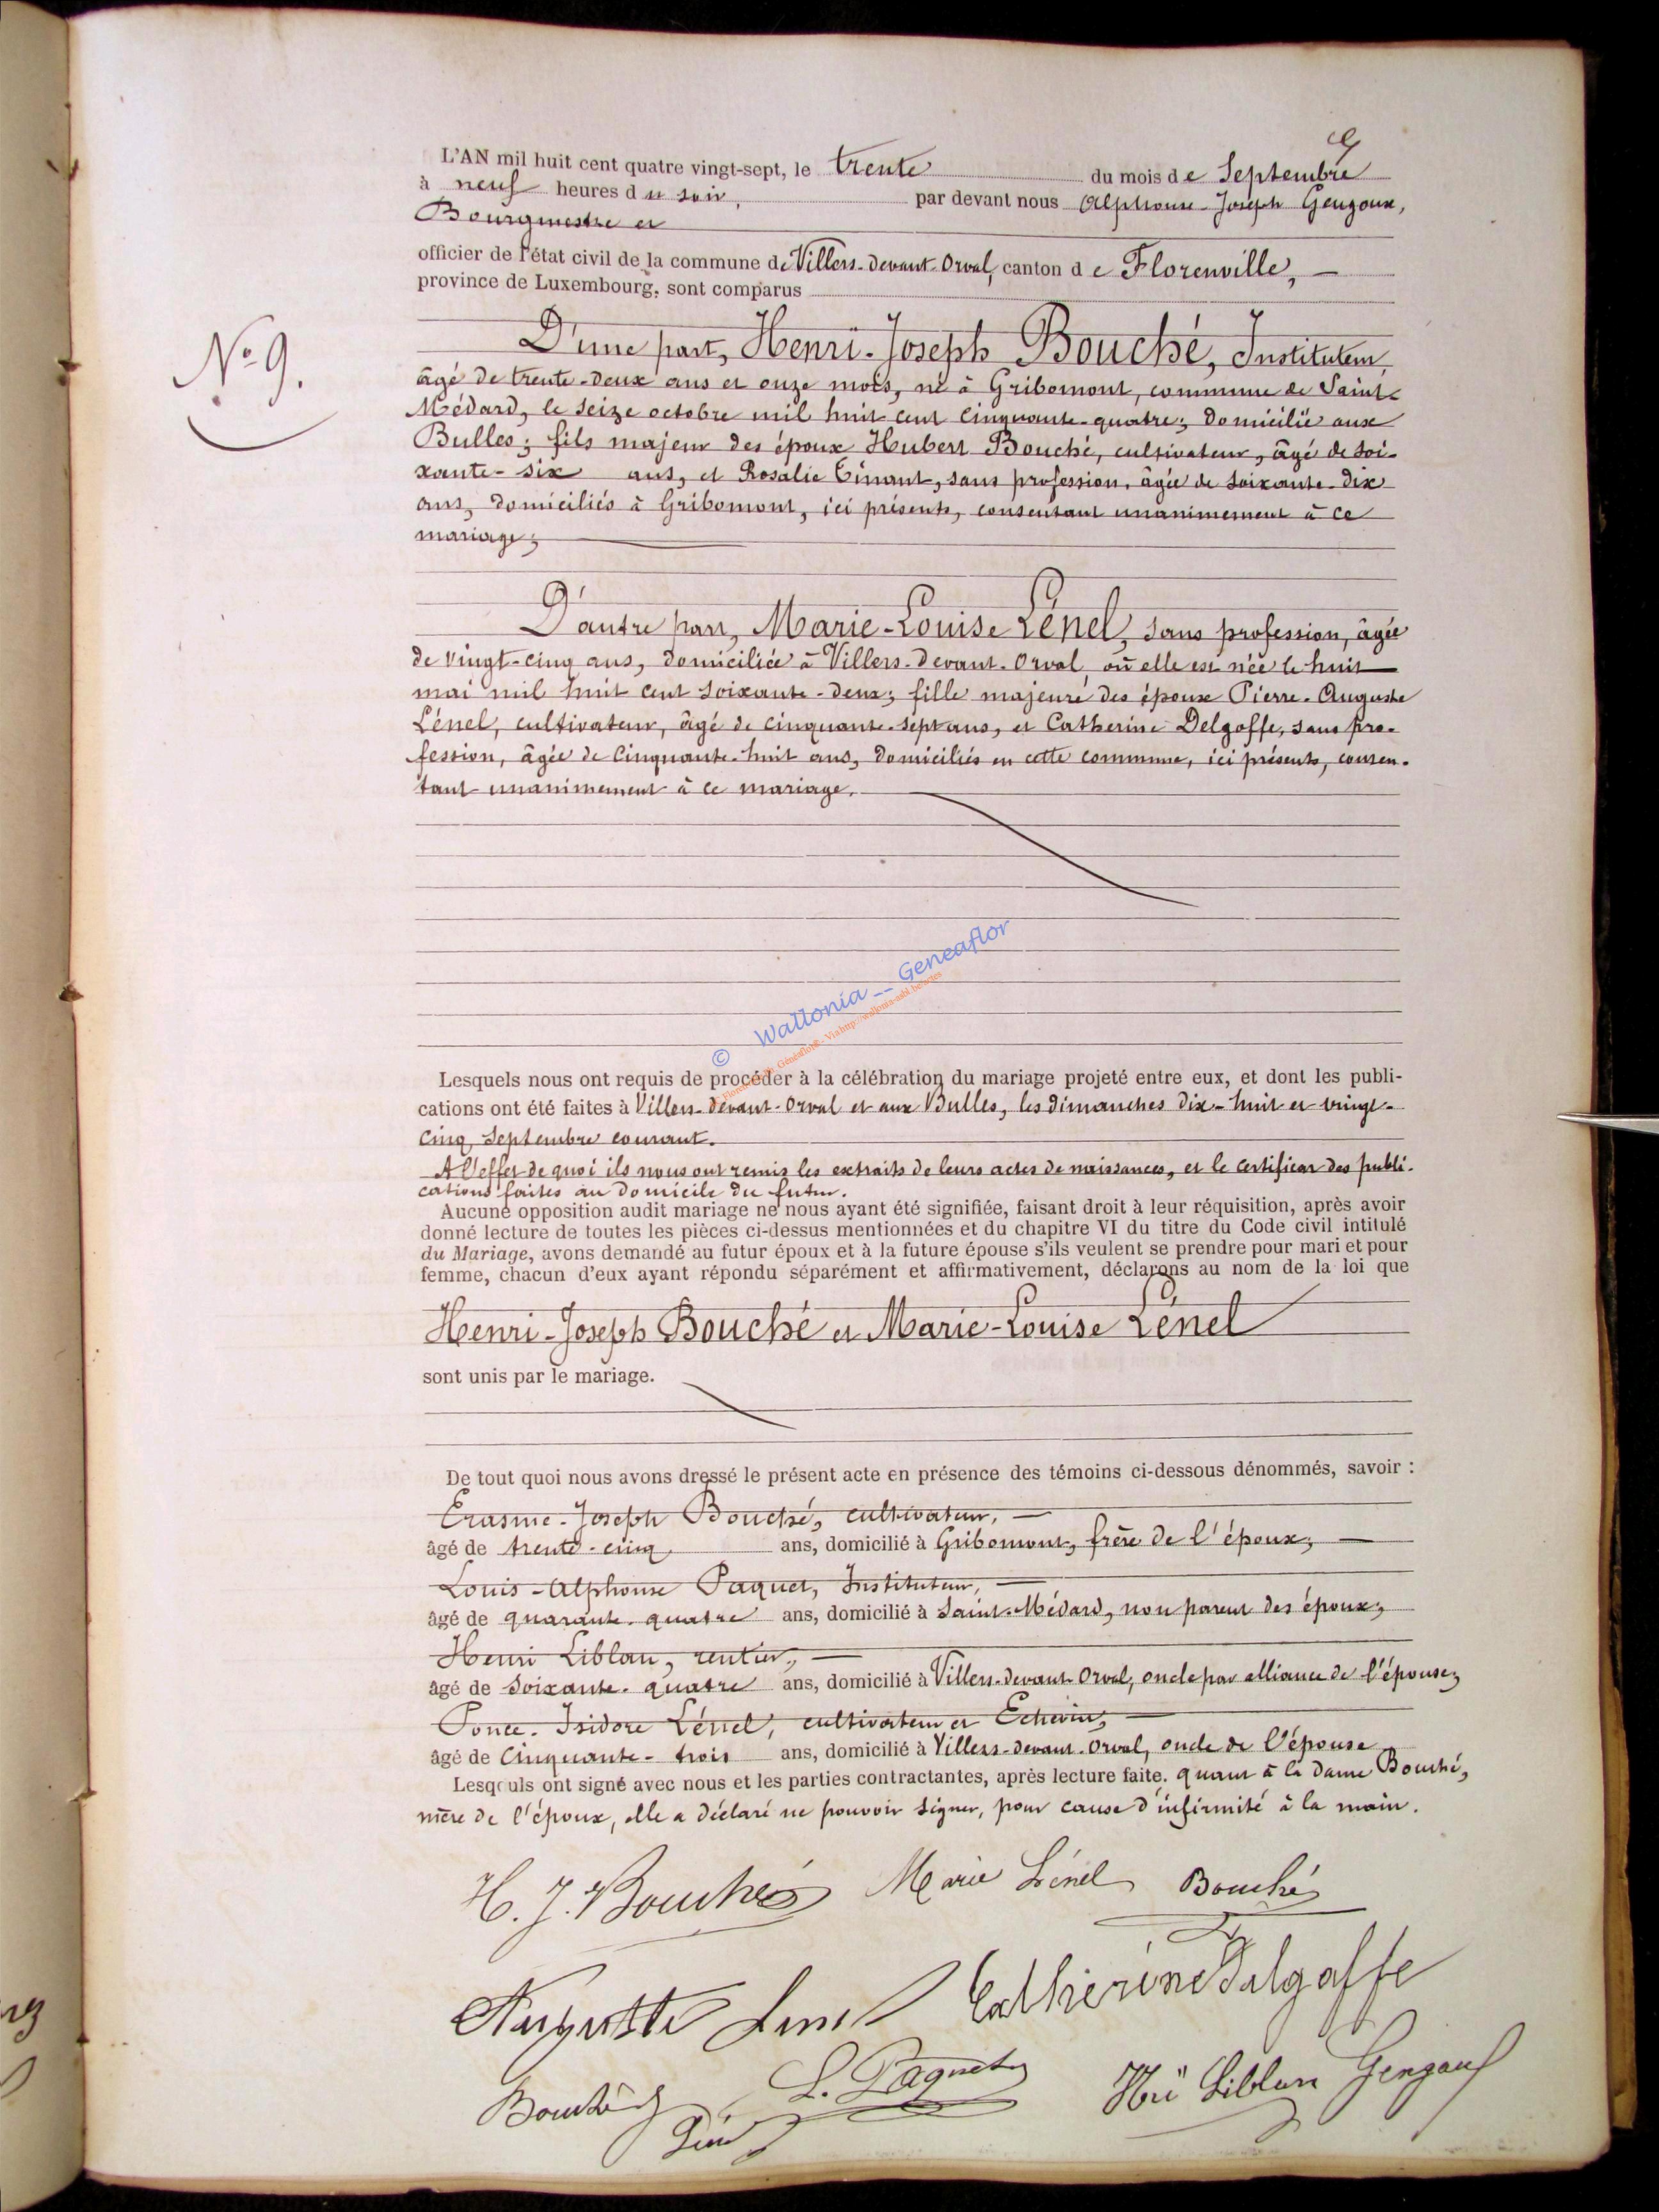 9
L'AN mil huit cent quatre vingt-sept, le trente du mois de Septembre
à neuf heures du soir, par devant nous Alphonse-Joseph Gengoux,
Bourgmestre et
officier de l'état civil de la commune de Villers-devant-Orval, canton de Florenville, —
province de Luxembourg, sont comparus
N° 9.
D'une part, Henri-Joseph Bouché, Instituteur,
âgé de trente-deux ans et onze mois, né à Gribomont, commune de Saint-
Médard, le seize octobre mil huit cent cinquante-quatre; domicilié aux
Bulles; fils majeur des époux Hubert Bouché, cultivateur, âgé de soi-
xante-six ans, et Rosalie Tinant, sans profession, âgée de soixante-dix
ans, domiciliés à Gribomont, ici présents, consentant unanimement à ce
mariage;
D'autre part, Marie-Louise Lénel, sans profession, âgée
de vingt-cinq ans, domiciliée à Villers-devant-Orval où elle est née le huit
mai mil huit cent soixante-deux; fille majeure des époux Pierre-Auguste
Lénel, cultivateur, âgé de cinquante-sept ans, et Catherine Delgoffe, sans pro-
fession, âgée de cinquante-huit ans, domiciliés en cette commune, ici présents, consen-
tant unanimement à ce mariage.
© Wallonia -- Geneaflor
Lesquels nous ont requis de procéder à la célébration du mariage projeté entre eux, et dont les publi-
cations ont été faites à Villers-devant-Orval et aux Bulles, les dimanches dix-huit et vingt-
cinq Septembre courant.
A l'effet de quoi ils nous ont remis les extraits de leurs actes de naissances, et le certificat des publi-
cations faites au domicile du futur.
Aucune opposition audit mariage ne nous ayant été signifiée, faisant droit à leur réquisition, après avoir
donné lecture de toutes les pièces ci-dessus mentionnées et du chapitre VI du titre du Code civil intitulé
du Mariage, avons demandé au futur époux et à la future épouse s'ils veulent se prendre pour mari et pour
femme, chacun d'eux ayant répondu séparément et affirmativement, déclarons au nom de la loi que
Henri-Joseph Bouché et Marie-Louise Lénel
sont unis par le mariage.
De tout quoi nous avons dressé le présent acte en présence des témoins ci-dessous dénommés, savoir :
Erasme-Joseph Bouché, cultivateur, —
âgé de trente-cinq ans, domicilié à Gribomont, frère de l'époux; —
Louis-Alphonse Paquet, Instituteur, —
âgé de quarante-quatre ans, domicilié à Saint-Médard, non parent des époux;
Henri Liblan, rentier, —
âgé de soixante-quatre ans, domicilié à Villers-devant-Orval, oncle par alliance de l'épouse;
Ponce-Isidore Lénel, cultivateur et Echevin, —
âgé de cinquante-trois ans, domicilié à Villers-devant-Orval, oncle de l'épouse
Lesquels ont signé avec nous et les parties contractantes, après lecture faite. quant à la dame Bouché,
mère de l'époux, elle a déclaré ne pouvoir signer, pour cause d'infirmité à la main.
H. J. Bouché Marie Lénel Bouché
Auguste Lenel Catherine Dalgoffe
Bouché L. Paquet Hri Liblan Gengoux